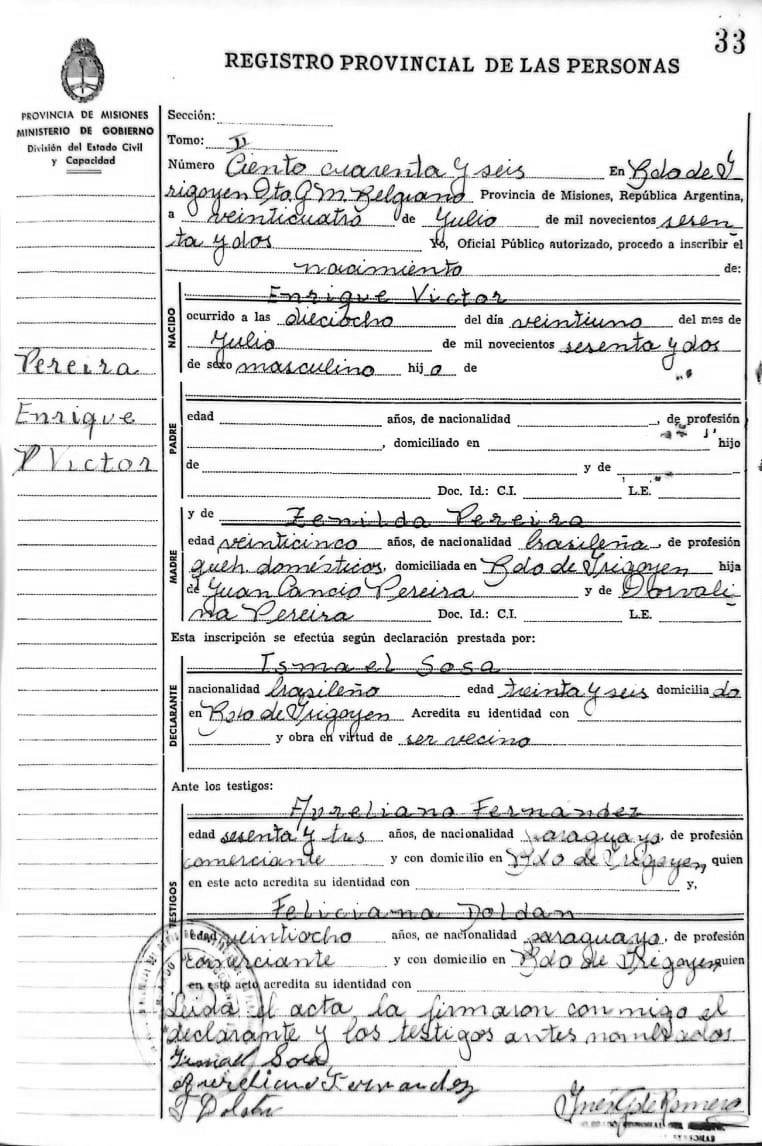 33
REGISTRO PROVINCIAL DE LAS PERSONAS
PROVINCIA DE MISIONES
MINISTERIO DE GOBIERNO
División del Estado Civil
y Capacidad
Pereira
Enrique
Victor
Sección:
Tomo: II
Número Ciento cuarenta y seis En Bdo de I
rigoyen Dto. G. M. Belgrano Provincia de Misiones, República Argentina,
a veinticuatro de Julio de mil novecientos sesen
ta y dos Yo, Oficial Público autorizado, procedo a inscribir el
nacimiento de:
NACIDO
Enrique Victor
ocurrido a las dieciocho del día veintiuno del mes de
Julio de mil novecientos sesenta y dos
de sexo masculino hijo de
PADRE
edad años, de nacionalidad , de profesión
, domiciliado en hijo
de y de
Doc. Id.: C.I. L.E.
MADRE
y de Zenilda Pereira
edad veinticinco años, de nacionalidad brasileña, de profesión
queh. domésticos, domiciliada en Bdo de Irigoyen hija
de Juan Cancio Pereira y de Dorvali
na Pereira Doc. Id.: C.I. L.E.
Esta inscripción se efectúa según declaración prestada por:
DECLARANTE
Ismael Sosa
nacionalidad brasileño edad treinta y seis domiciliado
en Bdo de Irigoyen Acredita su identidad con
y obra en virtud de ser vecino
Ante los testigos:
TESTIGOS
Aureliano Fernández
edad sesenta y tres años, de nacionalidad paraguaya, de profesión
comerciante y con domicilio en Bdo de Irigoyen, quien
en este acto acredita su identidad con y,
Feliciana Doldan
edad veintiocho años, de nacionalidad paraguaya, de profesión
comerciante y con domicilio en Bdo de Irigoyen quien
en este acto acredita su identidad con
Leída el acta, la firmaron conmigo el
declarante y los testigos antes nombrados
Ismael Sosa
Aureliano Fernandez
Inés G de Romero